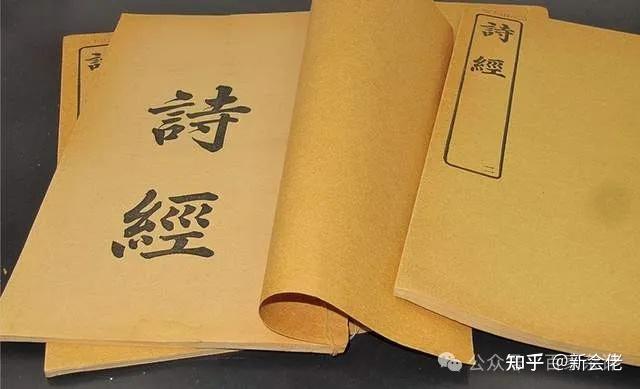 詩
經
詩
經
二
詩
知乎 @新会佬
公众